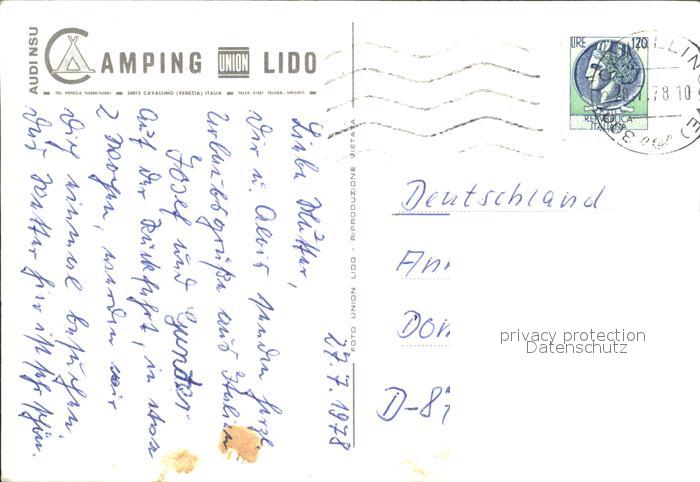 AUDI NSU
CAMPING UNION LIDO
TEL. VENEZIA 30013 CAVALLINO (VENEZIA) ITALIA TELEX. TELEGR. UNILIDO
27.7.1978
Liebe Mutter,
Dir u. Alois senden herzl.
Urlaubsgrüße aus Italien
Josef und Gunter
Auf der Rückfahrt, in etwa
2 Wochen, werden wir
Dich einmal besuchen.
Das Wetter hier ist sehr schön.
FOTO UNION LIDO - RIPRODUZIONE VIETATA
LIRE 120
REPUBBLICA
ITALIANA
78 10
Deutschland
An
Dom
D-87
privacy protection
Datenschutz